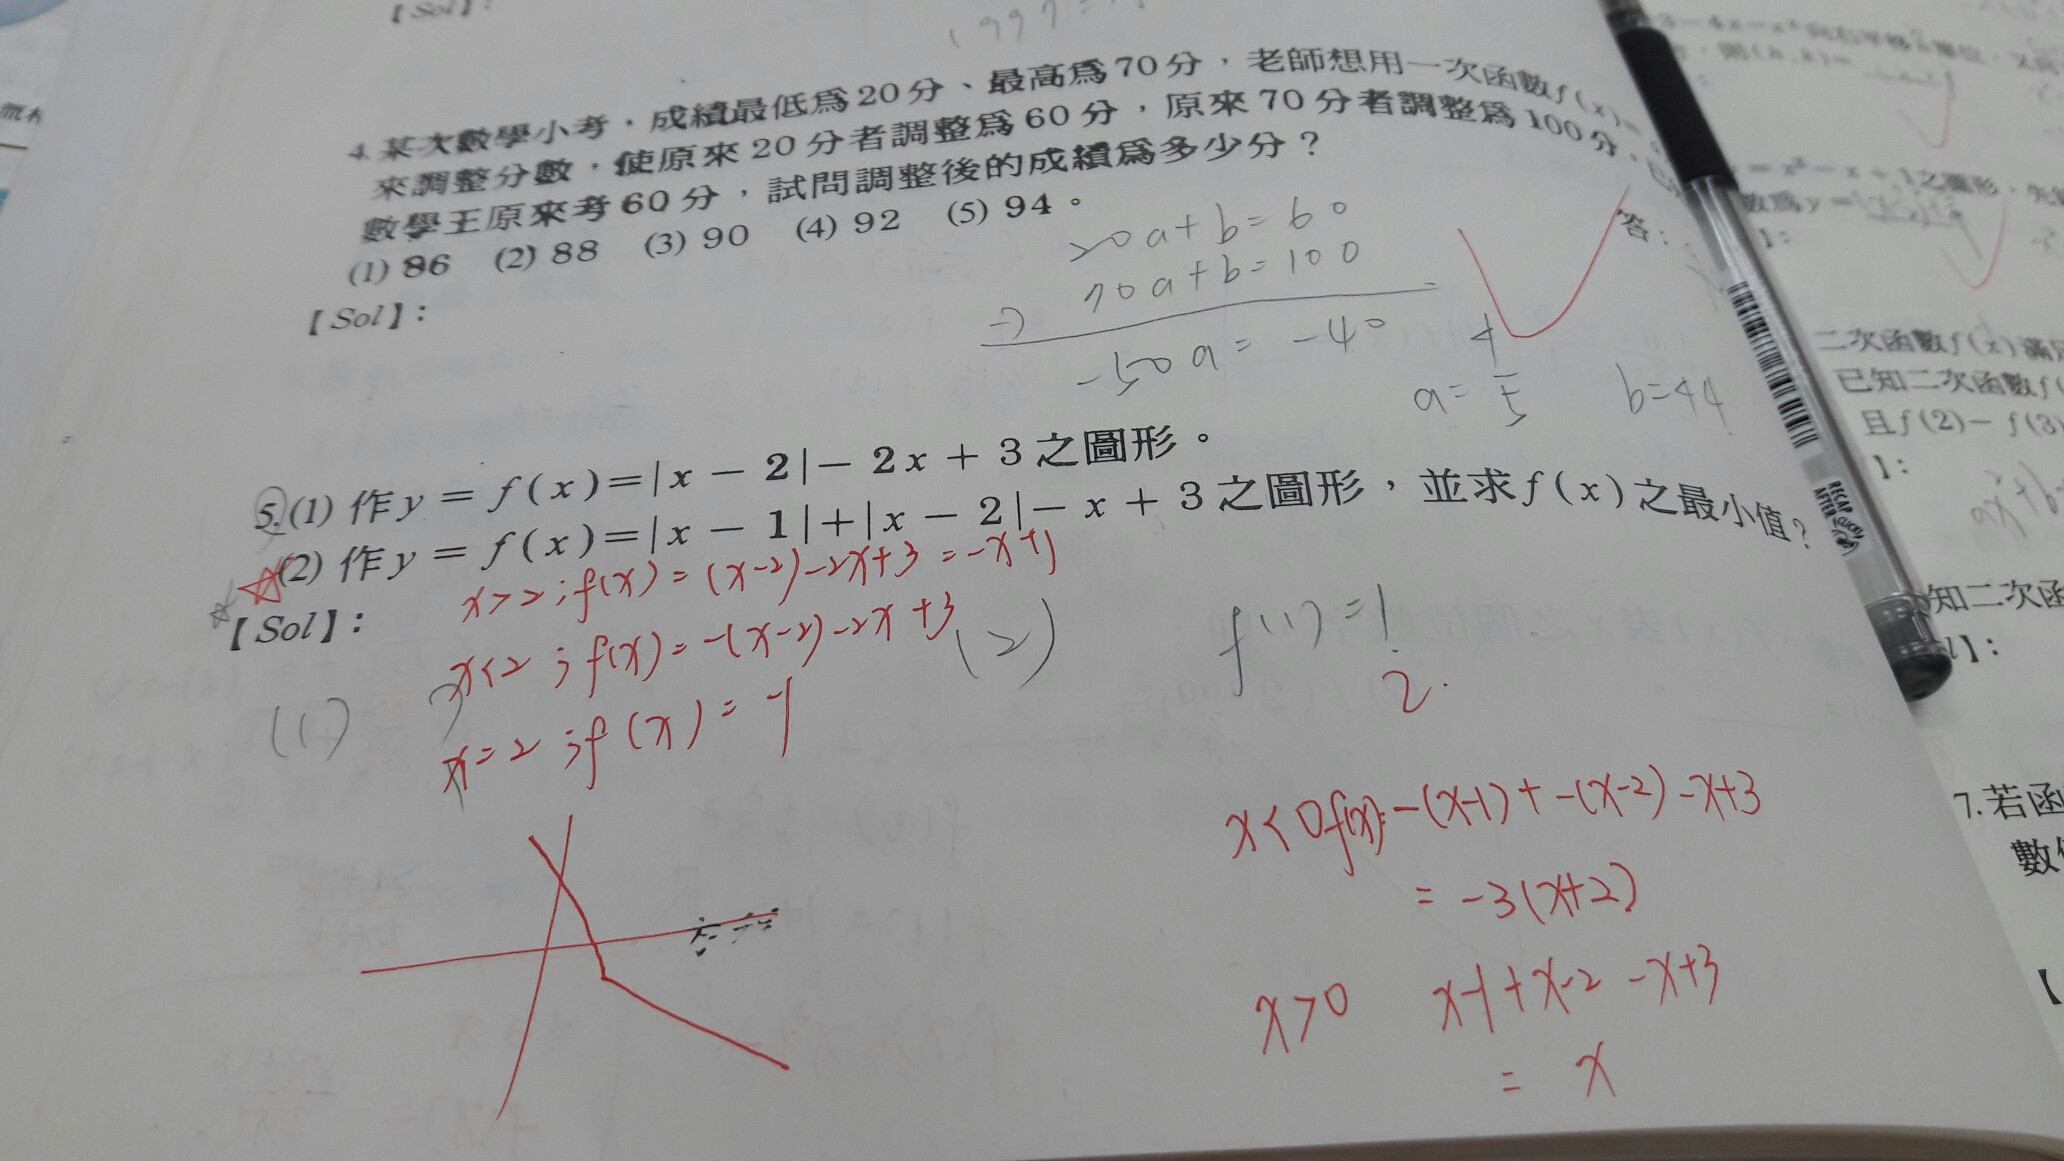 【Sol】:
4.某次數學小考，成績最低為20分、最高為70分，老師想用一次函數f(x)=
來調整分數，使原來20分者調整為60分，原來70分者調整為100分，已
數學王原來考60分，試問調整後的成績為多少分？
(1) 86 (2) 88 (3) 90 (4) 92 (5) 94。
答：
【Sol】:
20a+b=60
70a+b=100
-)
-50a=-40
a=4/5 b=44
5.(1) 作y=f(x)=|x-2|-2x+3之圖形。
(2) 作y=f(x)=|x-1|+|x-2|-x+3之圖形，並求f(x)之最小值?
【Sol】:
x>2;f(x)=(x-2)-2x+3=-x+1
x<2;f(x)=-(x-2)-2x+3
x=2;f(x)=-1
(1)
(2)
f(1)=1
2.
x<0f(x)=-(x-1)+-(x-2)-x+3
=-3(x+2)
x>0 x-1+x-2-x+3
=x
3-4x-x²向右平移
=x²-x+1之圖形，先
數為y=
】:
二次函數f(x)滿足
已知二次函數f(
且f(2)-f(3)
】:
ax²+b
知二次函
】:
7.若函
數值
【